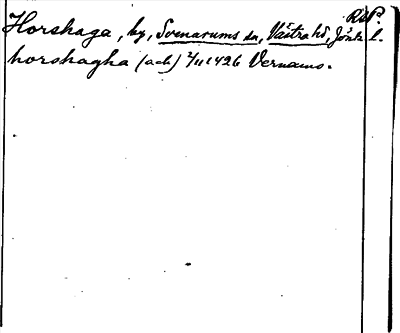 RAP.
Horshaga, by, Svenarums sn, Västra hd, Jönk. l.
horshagha (ack) 2/11 1426 Vernamo.